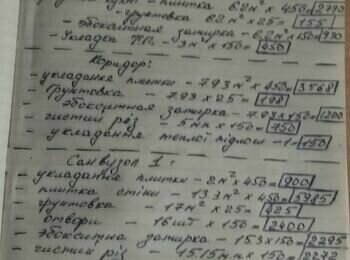 плитка 6.2м² x 450 = 2790
- грунтовка 6.2м² x 25 = 155
- эбокситная затирка - 6.2м² x 150 = 930
- Укладка Т.П. - 3м² x 150 = 450
Коридор:
- укладання плитки - 7.93м² x 450 = 3568
- Грунтовка - 7.93 x 25 = 198
- эбокситная затирка - 7.93 x 150 = 1200
- чистий різ - 5мп x 150 = 750
- укладання теплої підлоги - 1 = 150
Сан вузол 1:
- укладання плитки - 2м² x 450 = 900
- плитка стіни - 13.3м² x 450 = 5985
- грунтовка - 17м² x 25 = 425
- отвори - 16шт x 150 = 2400
- эбокситна затирка - 15.3 x 150 = 2295
- чистий різ - 15.15мп x 150 = 2272